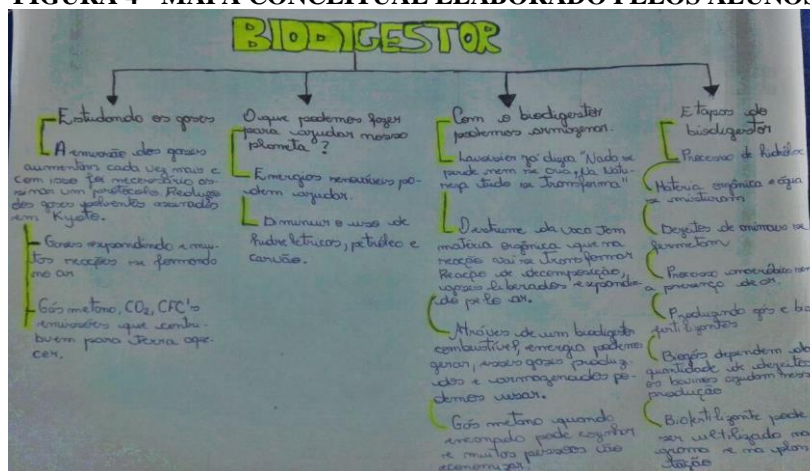 FIGURA 4 - MAPA CONCEITUAL ELABORADO PELOS ALUNOS
BIODIGESTOR
Estudando os gases
A emissão dos gases
aumentam cada vez mais e
com isso foi necessário as-
sinar um "protocolo. Redução
dos gases poluentes assinados
em "Kyoto.
Gases expandindo e mui-
tas reações se formando
no ar
Gás metano, CO2, CFC's
emissões que contri-
buem para Terra aque-
cer.
O que podemos fazer
para ajudar nosso
planeta?
Energias renováveis po-
dem ajudar.
Diminuir o uso de
hidrelétricas, petróleo e
carvão.
Com o biodigestor
podemos armazenar.
Lavoisier já dizia "Nada se
perde nem se cria, Na Natu-
reza tudo se Transforma"
O estrume da vaca tem
matéria orgânica que na
reação vai se transformar
Reação de decomposição,
gases liberados expandin-
do pelo ar.
Através de um biodigestor
combustível, energia podemos
gerar, esses gases produzi-
dos e armazenados po-
demos usar.
Gás metano quando
encanado pode cozinhar
e muitas pessoas vão
economizar!
Etapas do
biodigestor
Processo de hidróloc
Matéria orgânica e água
se misturam
Dejetos de animais se
fermetam
Processo anaeróbico sem
a presença de ar.
Produzindo gás e bio
fertilizantes
Biogás dependem da
quantidade de dejetos
os bovinos ajudam nessa
produção
Biofertilizante pode
ser utilizado na
grama e na plan
tação